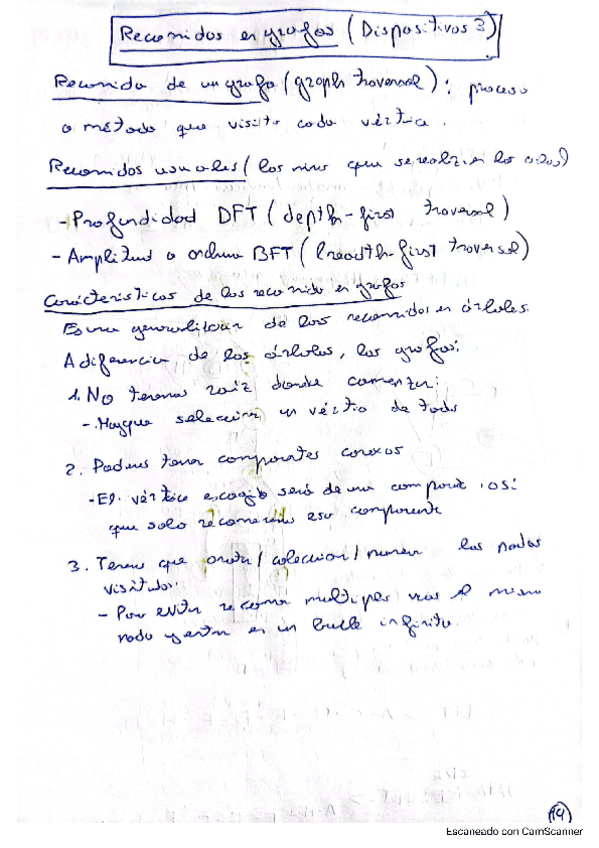 Recorridos en grafos (Dispositivas 3)
Recorrido de un grafo (graph traversal): proceso
o método que visita cada vértice.
Recorridos usuales (los mismos que se realizan en los árboles)
- Profundidad DFT (depth-first traversal)
- Amplitud o ordenen BFT (breadth-first traversal)
Carácteristicas de los recorrido en grafos
Es una generalización de los recorridos en árboles.
A diferencia de los árboles, los grafos:
1. No tenemos raiz donde comenzar:
-. Hay que seleccionar un vértice de todos
2. Podemos tener componentes conexos
- El vértice escogido será de una componente, así
que solo recorrerás esa componente
3. Tenemos que anotar/coleccionar/numerar los nodos
visitados.
- Para evitar recorrer multiples veces el mismo
nodo y entrar en un bucle infinito.
14
Escaneado con CamScanner